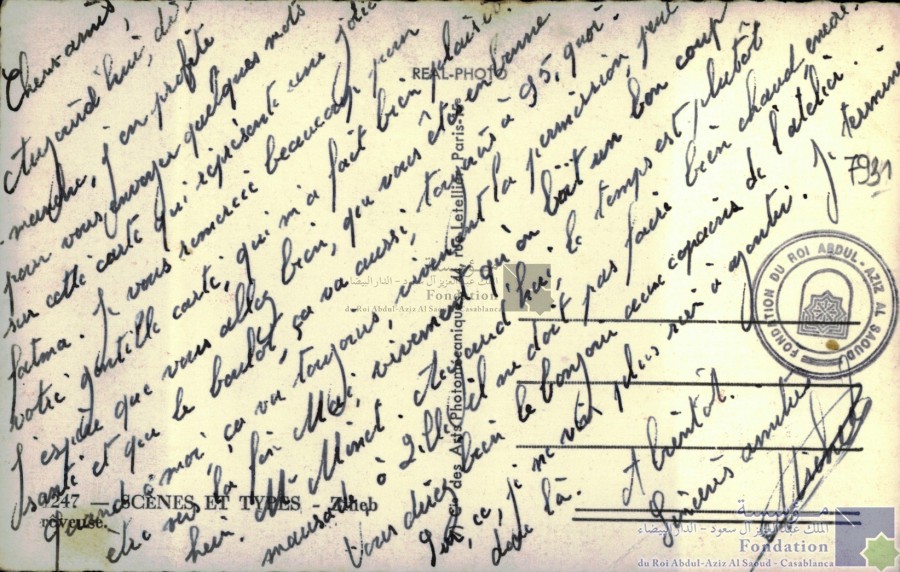 Chers amis,
Aujourd'hui,
j'en profite
pour vous envoyer quelques mots
sur cette carte qui représente une jolie
fatma. Je vous remercie beaucoup pour
votre gentille carte, qui m'a fait bien plaisir.
J'espère que vous allez bien, que vous êtes en bonne
santé et que le boulot, ça va aussi, toujours à 95, quoi.
Quand à moi, ça va toujours, vivement la permission, peut
etre vers la fin Mai, vivement qu'on boit un bon coup
hein. Mr Minet. Aujourd'hui, le temps est plutôt
maussade, à Lille il ne doit pas faire bien chaud encore.
Vous direz bien le bonjour aux copains de l'atelier.
je ne vois plus rien à ajouter. Je termine
donc là.
A bientôt.
Sincères amitiés
Michel
7931
REAL-PHOTO
des Arts Photomécaniques, rue Letellier, Paris-15e
7247 — SCÈNES ET TYPES - Zineb
rêveuse.
FONDATION DU ROI ABDUL-AZIZ AL SAOUD
مؤسسة
الملك عبد العزيز آل سعود - الدار البيضاء
Fondation
du Roi Abdul-Aziz Al Saoud - Casablanca
مؤسسة
الملك عبد العزيز آل سعود - الدار البيضاء
Fondation
du Roi Abdul-Aziz Al Saoud - Casablanca